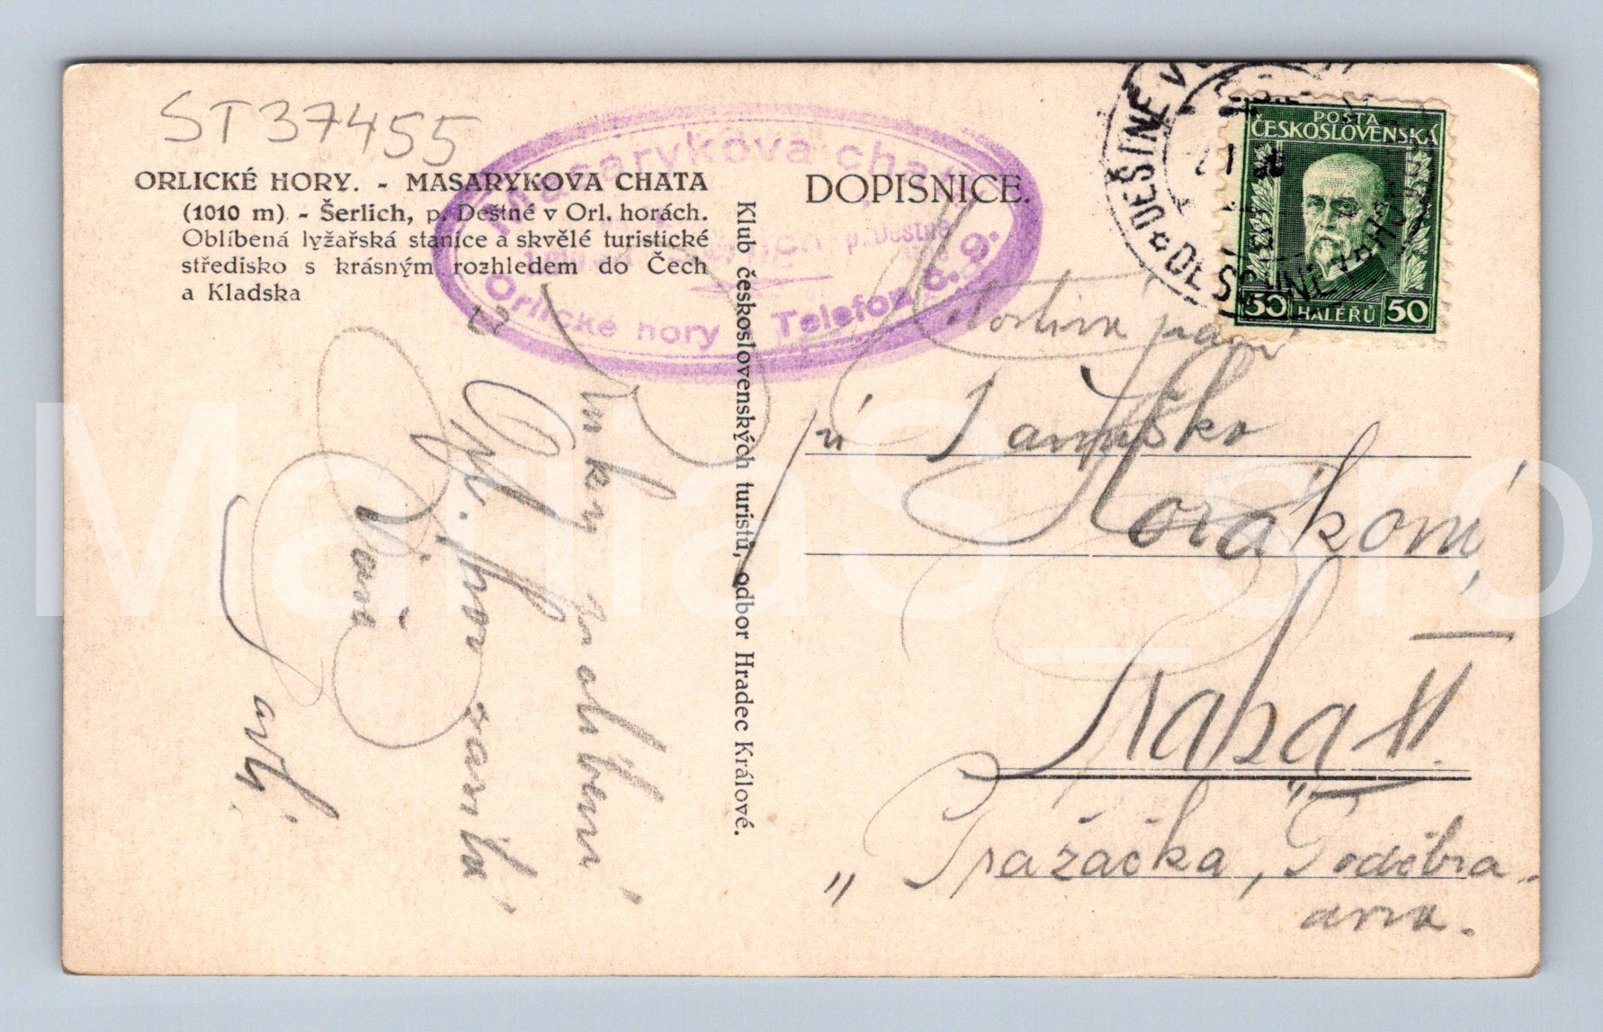 ST37455
ORLICKÉ HORY. - MASARYKOVA CHATA
(1010 m) - Šerlich, p. Deštné v Orl. horách.
Oblíbená lyžařská stanice a skvělé turistické
středisko s krásným rozhledem do Čech
a Kladska
Masarykova chata
p. Deštné
Orlické hory Telefon č. 9.
DOPISNICE.
Klub československých turistů, odbor Hradec Králové.
DEŠTNÉ V
POŠTA
ČESKOSLOVENSKÁ
50 HALÉŘŮ 50
Ruky políbení
Vaši
paní
Horákoví
Praha II.
"Pražačka, Poděbra-
dova.
MariaS_gro